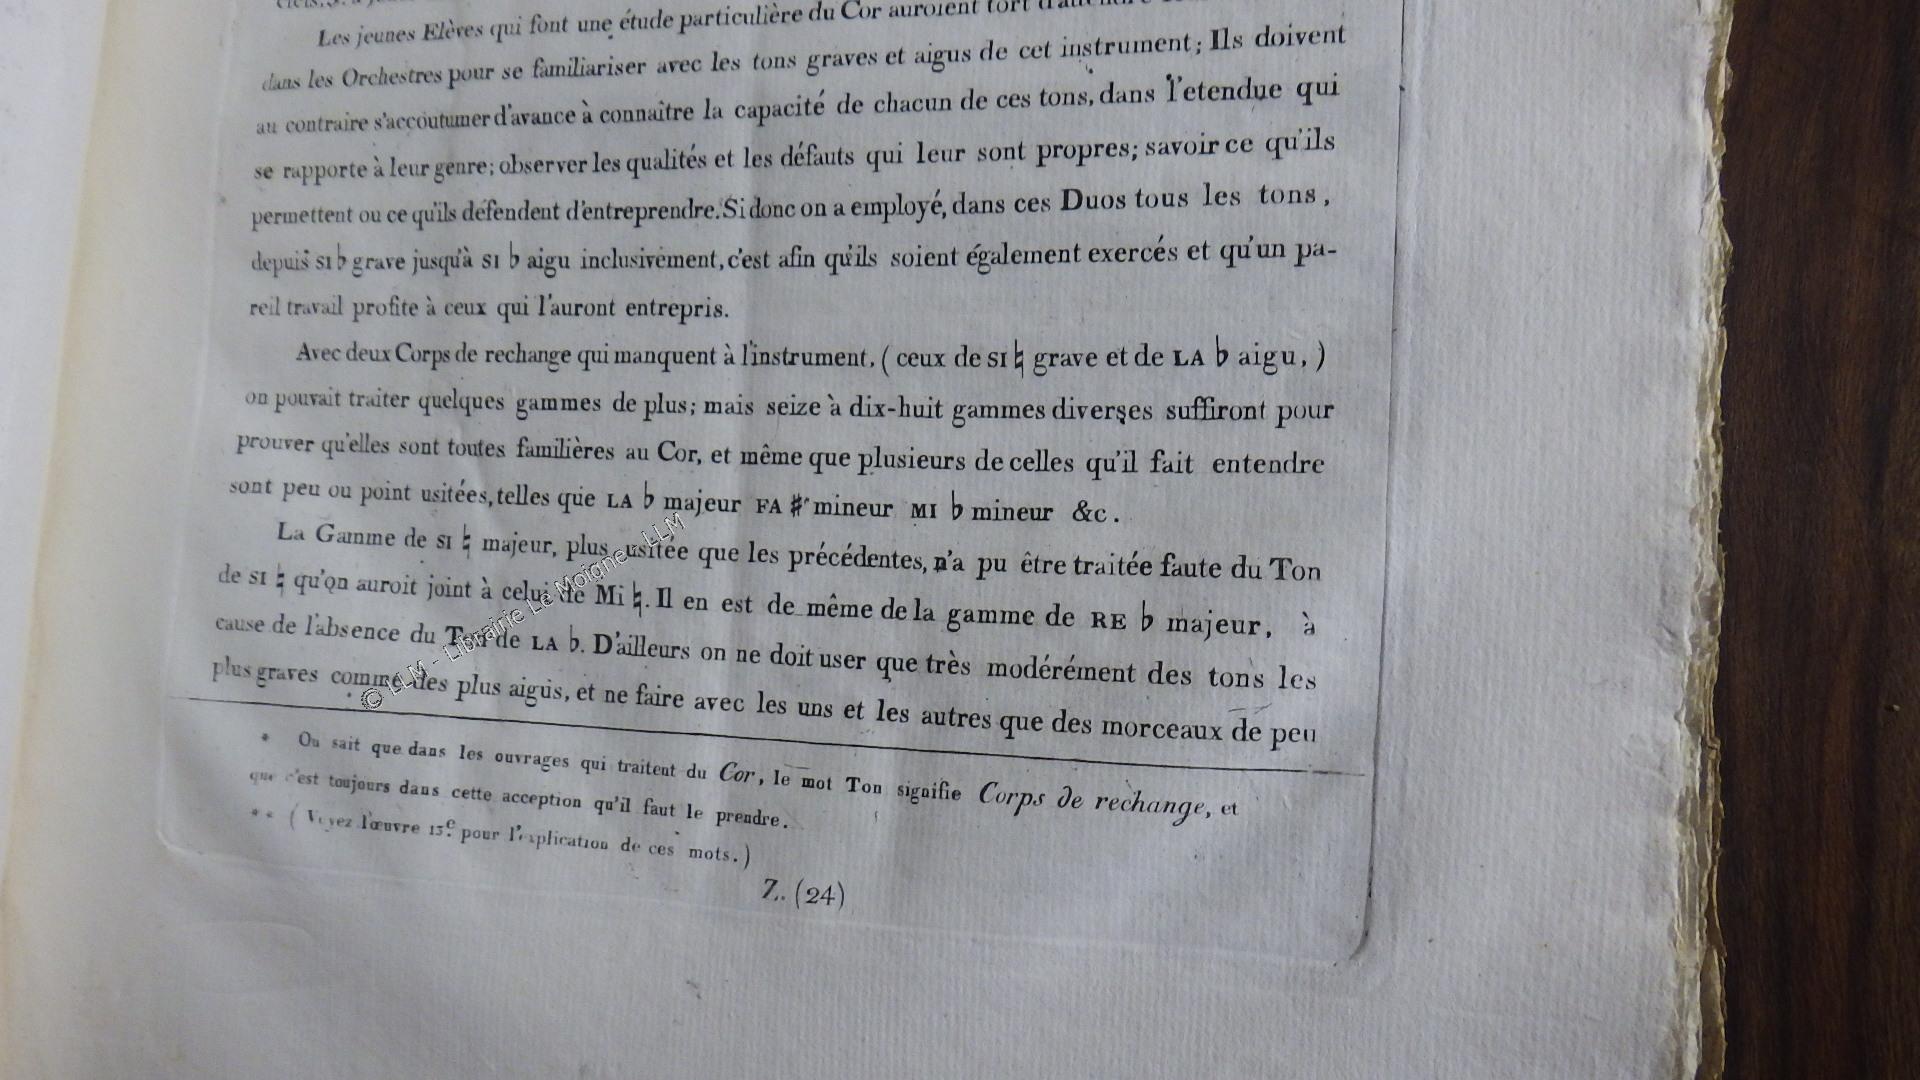 Les jeunes Elèves qui font une étude particulière du Cor auroient tort
dans les Orchestres pour se familiariser avec les tons graves et aigus de cet instrument; Ils doivent
au contraire s'accoutumer d'avance à connaître la capacité de chacun de ces tons, dans l'etendue qui
se rapporte à leur genre; observer les qualités et les défauts qui leur sont propres; savoir ce qu'ils
permettent ou ce qu'ils défendent d'entreprendre. Si donc on a employé, dans ces Duos tous les tons,
depuis SI ♭ grave jusqu'à SI ♭ aigu inclusivement, c'est afin qu'ils soient également exercés et qu'un pa-
reil travail profite à ceux qui l'auront entrepris.
Avec deux Corps de rechange qui manquent à l'instrument, (ceux de SI ♮ grave et de LA ♭ aigu,)
on pouvait traiter quelques gammes de plus; mais seize à dix-huit gammes diverses suffiront pour
prouver qu'elles sont toutes familières au Cor, et même que plusieurs de celles qu'il fait entendre
sont peu ou point usitées, telles que LA ♭ majeur FA ♯ mineur MI ♭ mineur &c.
La Gamme de SI ♮ majeur, plus usitée que les précédentes, n'a pu être traitée faute du Ton
de SI ♮ qu'on auroit joint à celui de Mi ♮. Il en est de même de la gamme de RE ♭ majeur, à
cause de l'absence du Ton de LA ♭. D'ailleurs on ne doit user que très modérément des tons les
plus graves comme des plus aigus, et ne faire avec les uns et les autres que des morceaux de peu
* On sait que dans les ouvrages qui traitent du Cor, le mot Ton signifie Corps de rechange, et
que c'est toujours dans cette acception qu'il faut le prendre.
** (Voyez l'œuvre 13e. pour l'explication de ces mots.)
Z.. (24)
© LLM - Librairie Le Moigne - LLM